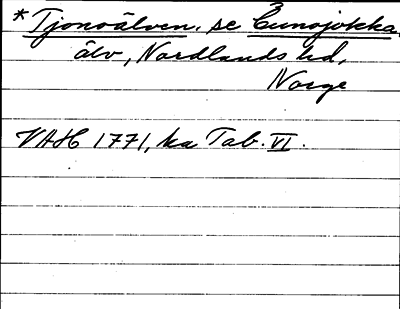 *Tjonoälven. se Čunojokka,
älv, Nordlands hd,
Norge
VAH 1771, ka Tab. VI.